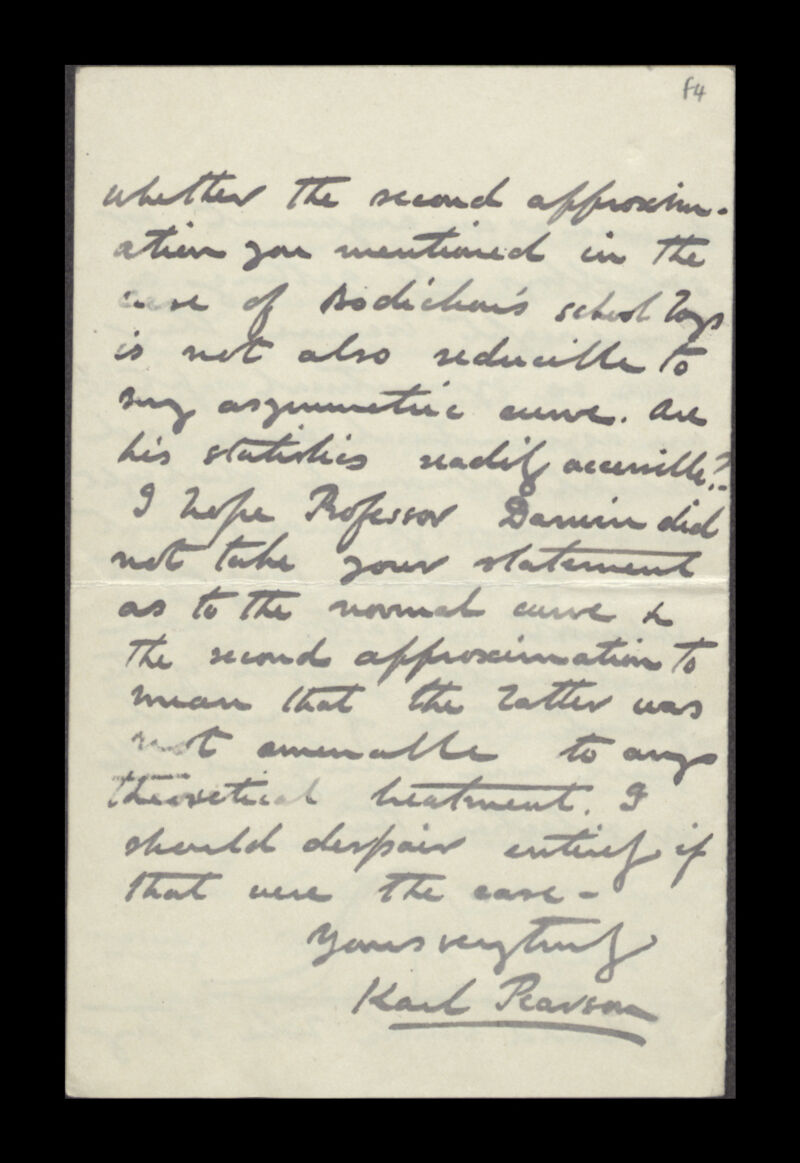 f4
whether the second approxim-
ation you mentioned in the
case of school boys
is not also reducible to
my asymmetric curve. Are
his statistics readily accessible?
I hope Professor Darwin did
not take your statement
as to the normal curve &
the second approximation to
mean that the latter was
not amenable to any
theoretical treatment. I
should despair entirely if
that were the case –
Yours very truly
Karl Pearson